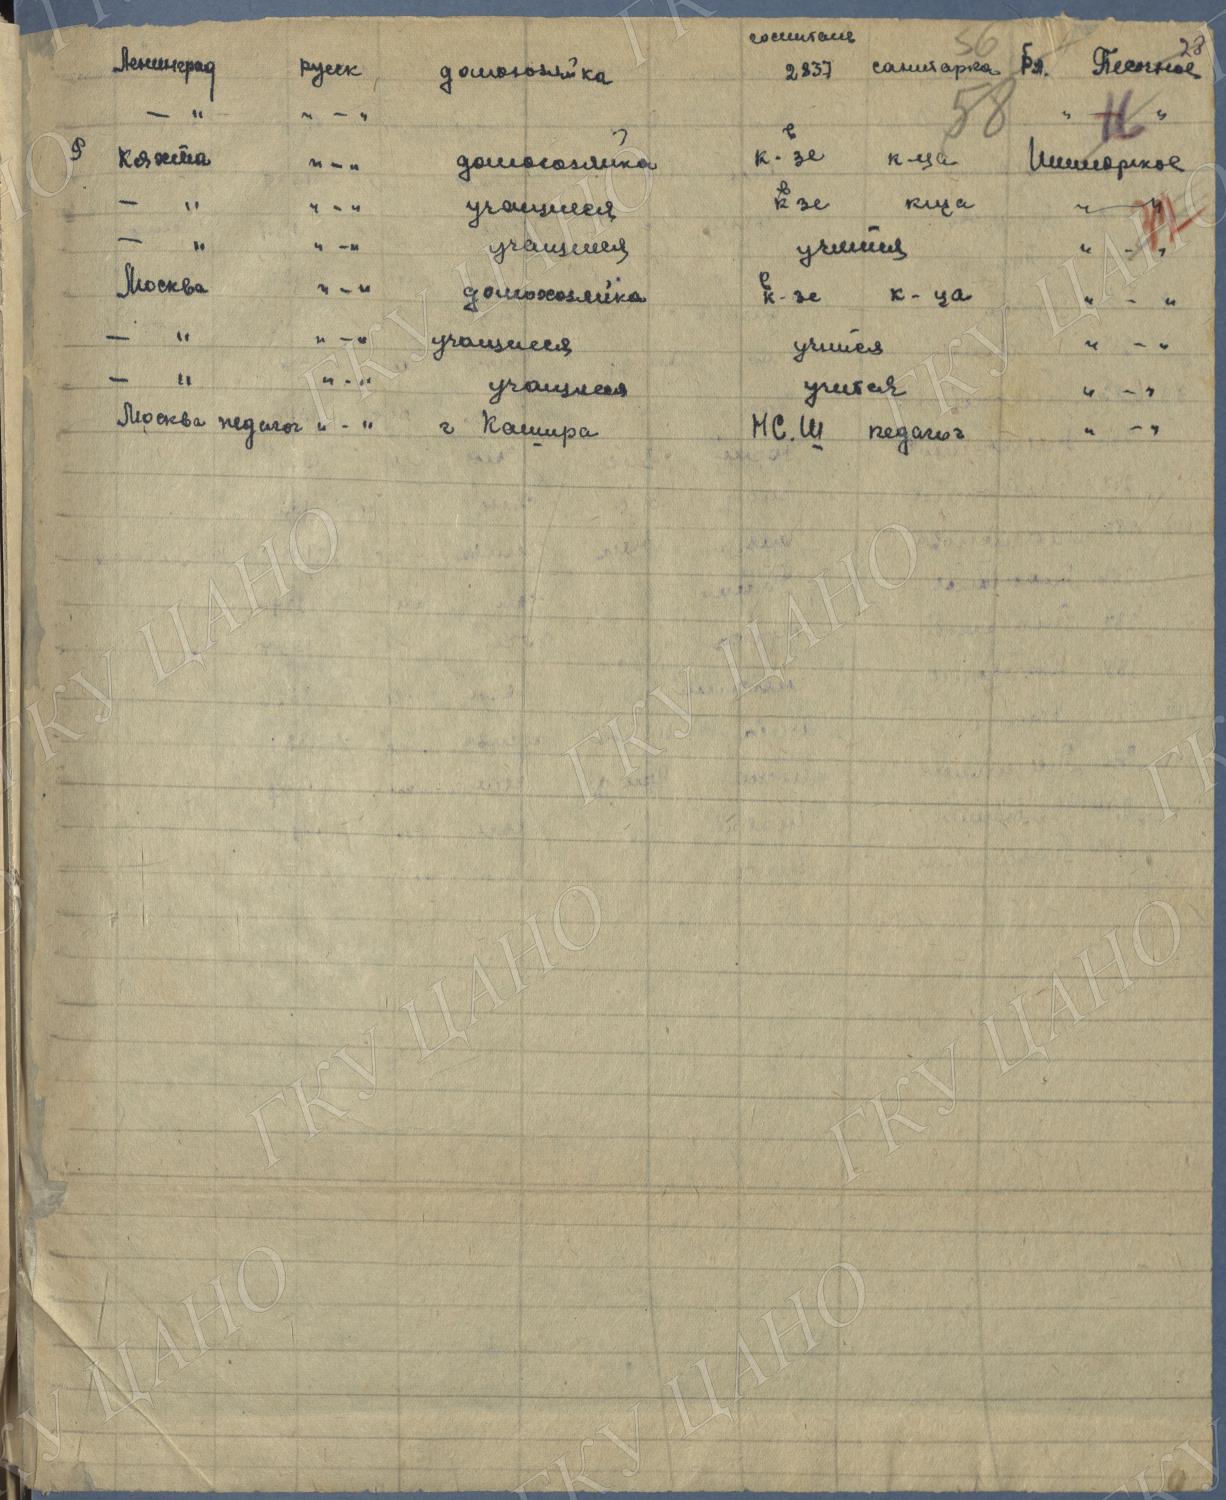 госпиталь 56 28
Ленинград русск домохозяйка 2837 санитарка Бл. Песочное
— " " — " 58 " — "
Кяхта " — " домохозяйка в к-зе к-ца Шиморское
— " " — " учащиеся в к-зе к-ца " — "
— " " — " учащиеся учится " — "
Москва " — " домохозяйка в к-зе к-ца " — "
— " " — " учащиеся учится " — "
— " " — " учащиеся учится " — "
Москва педагог " — " г Кашира НС.Ш педагог " — "
ГКУ ЦАНО